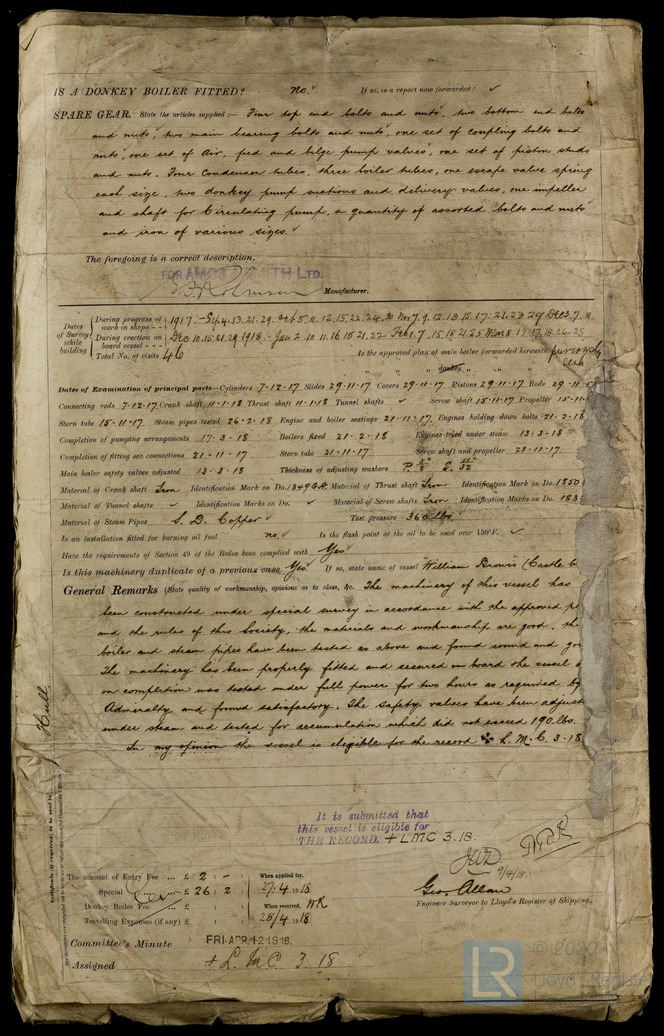 IS A DONKEY BOILER FITTED? no. If so, is a report now forwarded?
SPARE GEAR. State the articles supplied:— Four top end bolts and nuts, two bottom end bolts
and nuts, two main bearing bolts and nuts, one set of coupling bolts and
nuts, one set of Air, feed and bilge pump valves, one set of piston studs
and nuts. Four Condenser tubes, three boiler tubes, one escape valve spring
each size, two donkey pump suctions and delivery valves, one impeller
and shaft for Circulating pump, a quantity of assorted bolts and nuts
and iron of various sizes.
The foregoing is a correct description,
FOR AMOS & SMITH LTD.
Manufacturer.
Dates of Survey while building
During progress of work in shops -- 1917:- Sep 4.13.21.29. Oct 5.11.12.15.22.24.30 Nov 7.9.12.13.15.17.21.23.29 Dec 3.7.8
During erection on board vessel --- Dec 10.15.21.29 1918:- Jan 2.10.11.16.15.21.22 Feb 1.7.15.18.21.25 Mar 8.13.17.18.26.28
Total No. of visits 46 Is the approved plan of main boiler forwarded herewith
" " " donkey " " "
Dates of Examination of principal parts—Cylinders 7-12-17 Slides 29-11-17 Covers 29-11-17 Pistons 29-11-17 Rods 29-11-17
Connecting rods 7-12-17 Crank shaft 11-1-18 Thrust shaft 11-1-18 Tunnel shafts Screw shaft 15-11-17 Propeller 15-11-
Stern tube 15-11-17 Steam pipes tested 26-2-18 Engine and boiler seatings 21-11-17. Engines holding down bolts 21-2-18
Completion of pumping arrangements 17-3-18 Boilers fixed 21-2-18 Engines tried under steam 13-3-18
Completion of fitting sea connections 21-11-17 Stern tube 21-11-17 Screw shaft and propeller 21-11-17.
Main boiler safety valves adjusted 13-3-18 Thickness of adjusting washers
Material of Crank shaft Iron Identification Mark on Do. Material of Thrust shaft Iron Identification Mark on Do. 1850
Material of Tunnel shafts Identification Marks on Do. Material of Screw shafts Iron Identification Marks on Do. 183
Material of Steam Pipes S. D. Copper Test pressure 360 lbs
Is an installation fitted for burning oil fuel no. Is the flash point of the oil to be used over 150°F.
Have the requirements of Section 49 of the Rules been complied with Yes
Is this machinery duplicate of a previous case Yes If so, state name of vessel "William Brown" (Castle C
General Remarks (State quality of workmanship, opinions as to class, &c. The machinery of this vessel has
been constructed under special survey in accordance with the approved pl
and the rules of this Society, the materials and workmanship are good, the
boiler and steam pipes have been tested as above and found sound and goo
The machinery has been properly fitted and secured on board the vessel &
on completion was tested under full power for two hours as required by
Admiralty and found satisfactory. The safety valves have been adjust
under steam and tested for accumulation which did not exceed 190 lbs.
In my opinion the vessel is eligible for the record ✠ L.M.C. 3.18
Hull
It is submitted that
this vessel is eligible for
THE RECORD. + LMC 3.18.
9/4/18
The amount of Entry Fee ... £ 2 : - : When applied for,
Special ... £ 26 : 2 : 27.4.1918
Donkey Boiler Fee ... £ : : When received,
Travelling Expenses (if any) £ : : 28/4.1918.
Geo. Allan
Engineer Surveyor to Lloyd's Register of Shipping.
Committee's Minute FRI. APR. 12 1918.
Assigned + L.M.C. 3.18
LR © 2020
Lloyd's Register